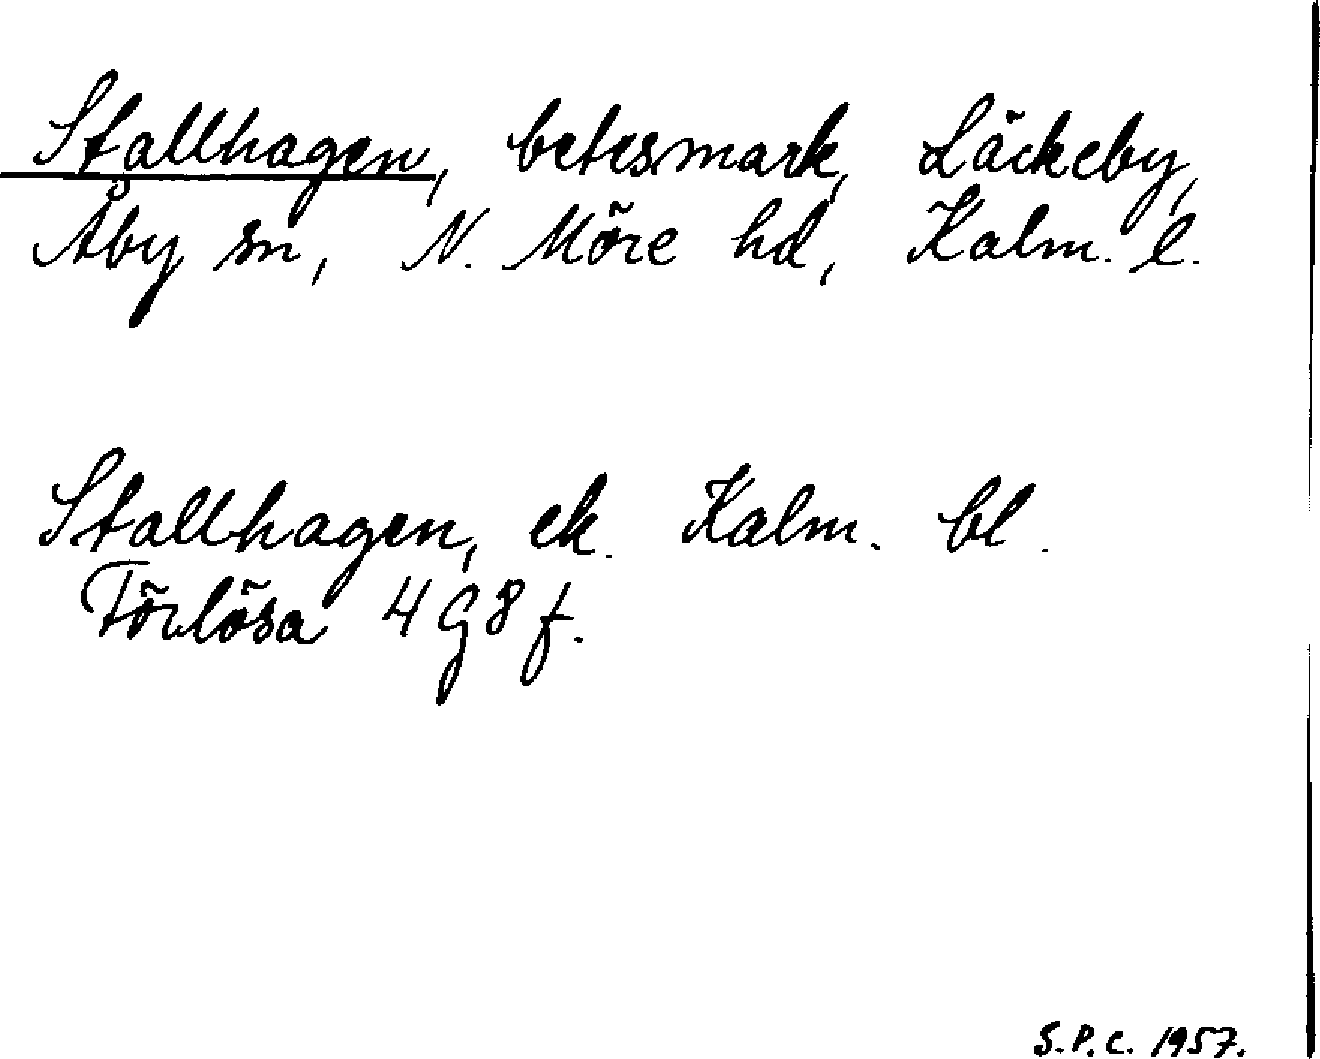 Stallhagen, betesmark, Läckeby,
Åby sn, N. Möre hd, Kalm. l.
Stallhagen, ek. Kalm. bl.
Förlösa 4 G 8 f.
S.P.C. 1957.